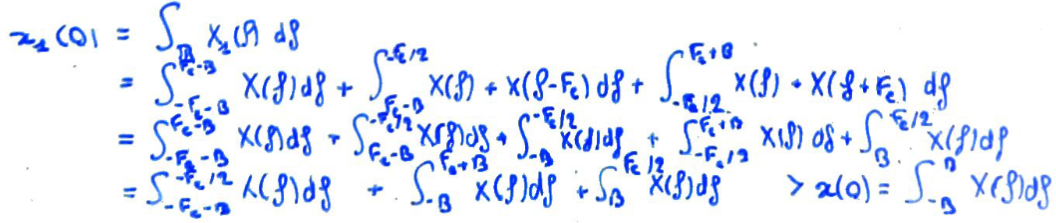 x₁(0) = ∫_ℝ X₁(f) df
= ∫_{-Fe-B}^{Fe-B} X(f) df + ∫_{Fe-B}^{-Fe/2} X(f) + X(f-Fe) df + ∫_{-Fe/2}^{Fe+B} X(f) + X(f+Fe) df
= ∫_{-Fe-B}^{Fe-B} X(f) df + ∫_{Fe-B}^{-Fe/2} X(f) df + ∫_{-B}^{-Fe/2} X(f) df + ∫_{-Fe/2}^{Fe+B} X(f) df + ∫_{B}^{Fe/2} X(f) df
= ∫_{-Fe-B}^{-Fe/2} X(f) df + ∫_{-B}^{Fe+B} X(f) df + ∫_{B}^{Fe/2} X(f) df > x(0) = ∫_{-B}^{B} X(f) df